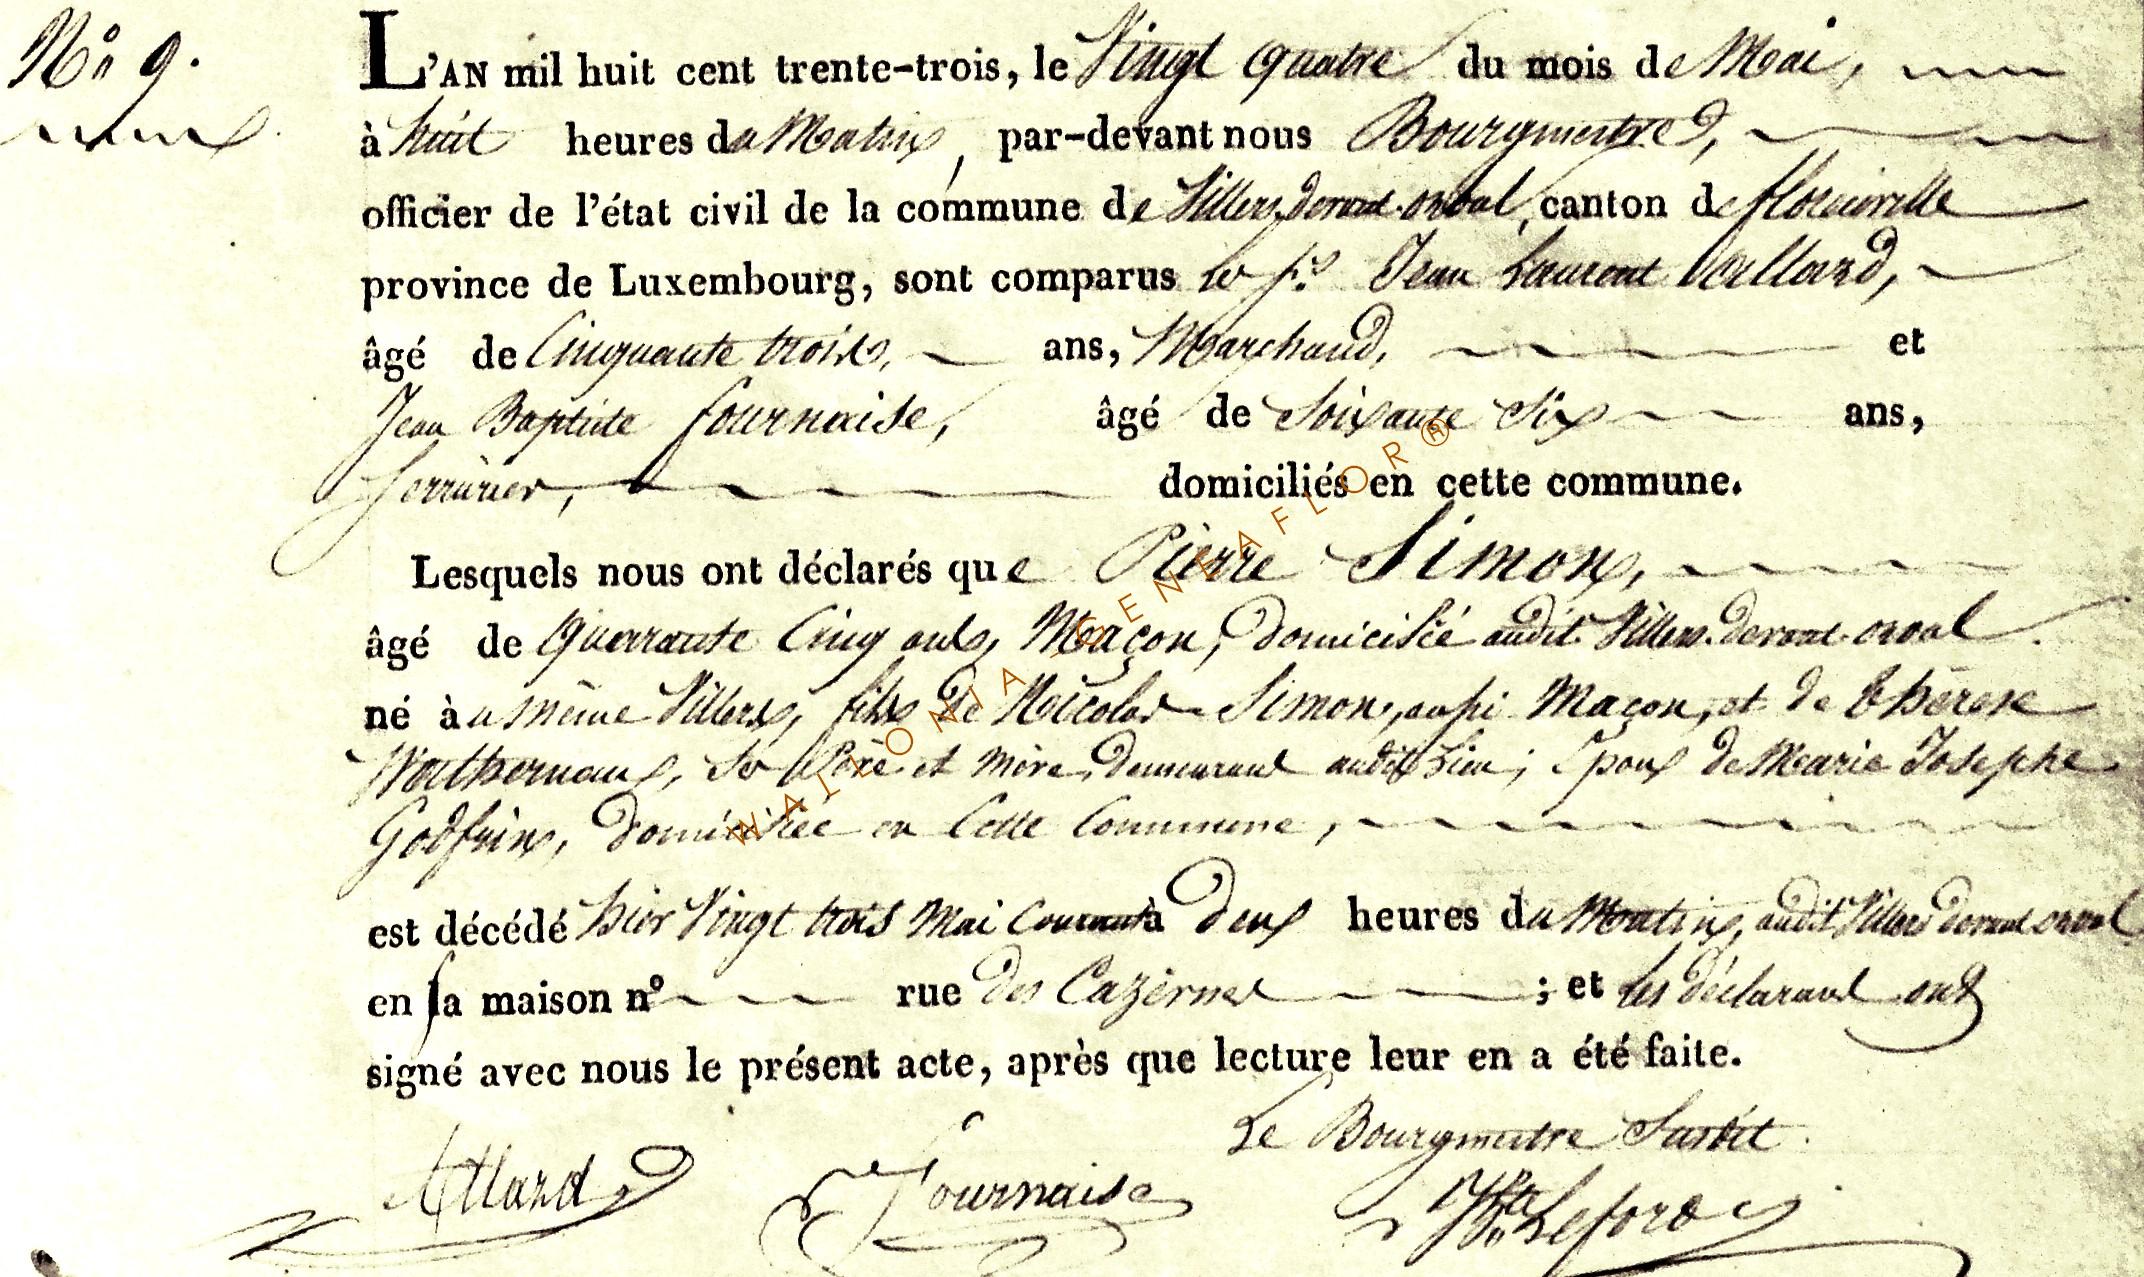 N° 9.
L'AN mil huit cent trente-trois, le Vingt quatre du mois de Mai,
à huit heures du Matin, par-devant nous Bourgmestre,
officier de l'état civil de la commune de Villers devant orval, canton de florenville
province de Luxembourg, sont comparus les Srs Jean Laurent Allard,
âgé de Cinquante trois, ans, Marchand, et
Jean Baptiste fournaise, âgé de Soixante Six ans,
Serrurier, domiciliés en cette commune.
Lesquels nous ont déclarés que Pierre Simon,
âgé de Quarrante Cinq ans, Maçon, domicilié audit Villers devant orval
né à au même Villers, fils de Nicolas Simon, aussi Maçon, et de thérese
ses Père et Mère, demeurant audit Lieu; Epoux de Marie Josephe
Godfrin, domiciliée en Cette Commune,
est décédé hier Vingt trois Mai Courant à deux heures du Matin, audit Villers devant orval
en sa maison n° rue des Cazernes ; et les déclarans ont
signé avec nous le présent acte, après que lecture leur en a été faite.
Le Bourgmestre Susdit
Allard Fournaise Leforé
WALLONIA GENEAFLOR®